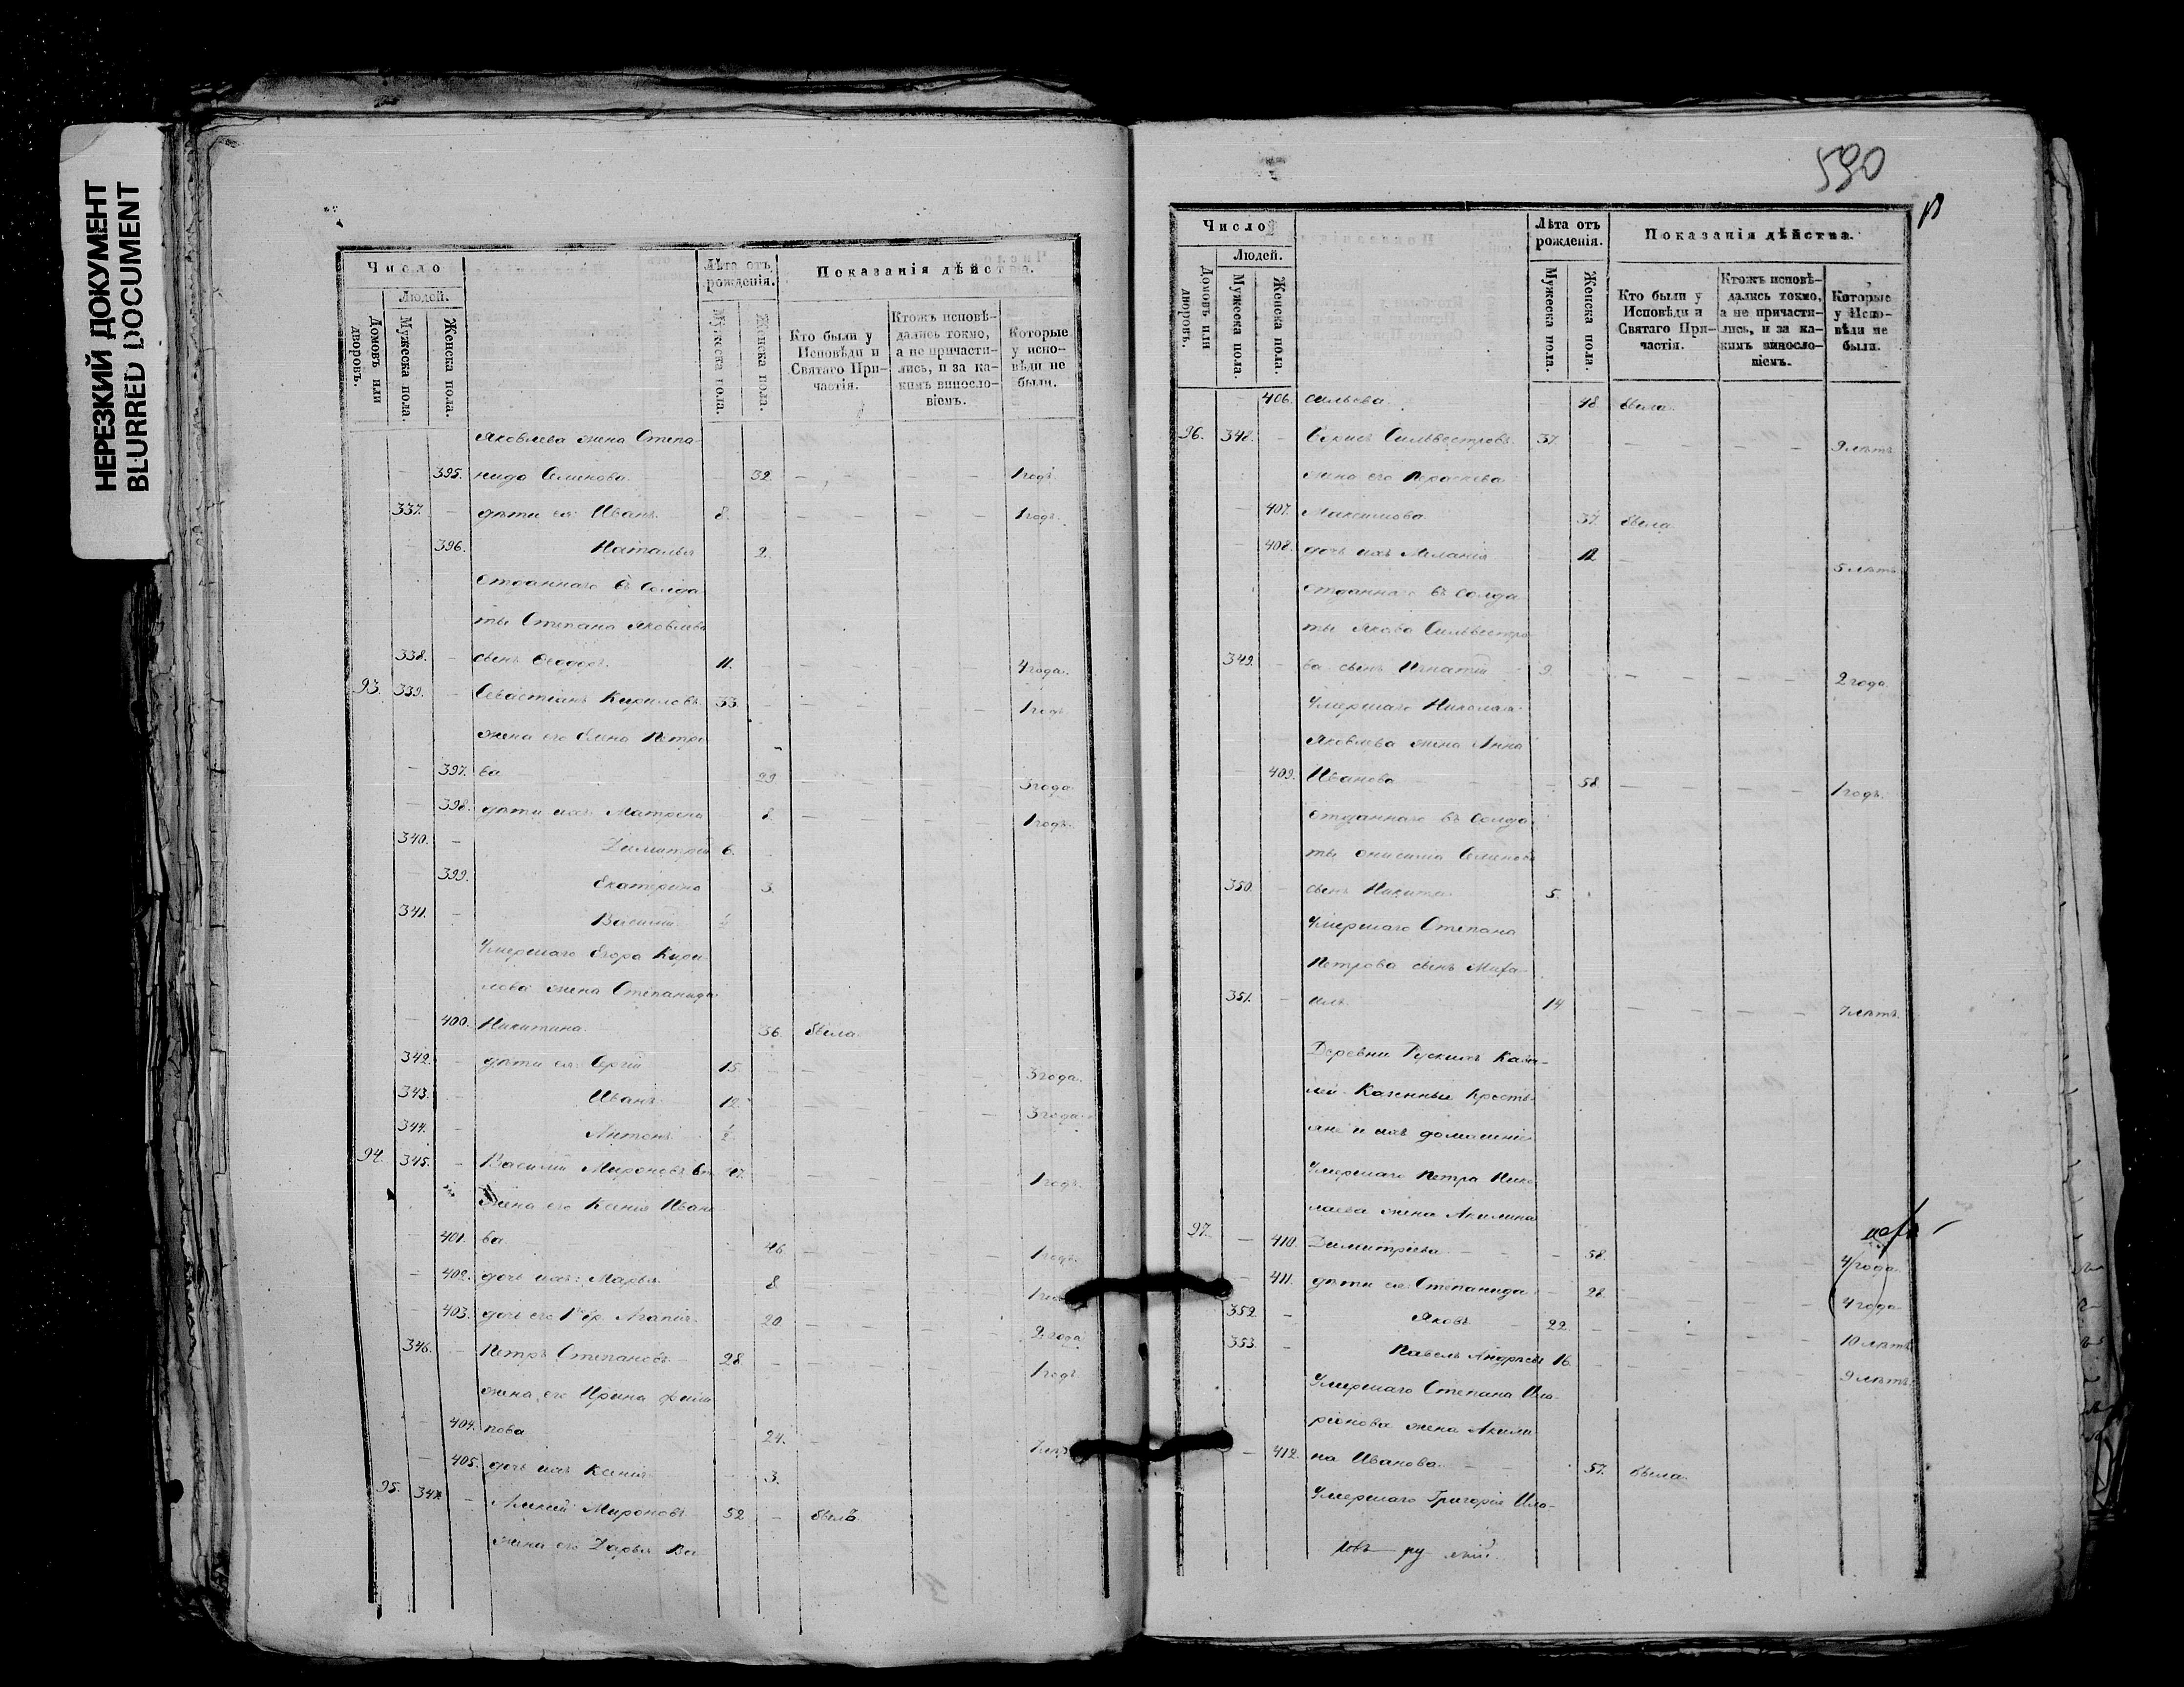 НЕРЕЗКИЙ ДОКУМЕНТ
BLURRED DOCUMENT
Число
Людей.
Домовъ или дворовъ.
Мужеска пола
Женска пола.
Лѣта отъ рожденія.
Мужеска пола.
Женска пола.
Показанія дѣйства.
Кто были у Исповѣди и Святаго Причастія.
Ктожъ исповѣдались токмо, а не причастились, и за какимъ винословіемъ.
Которые у исповѣди не были.
Яковлева жена Степа-
395. нида Семенова 32. 1 годъ
337. дѣти ея: Иванъ 8. 1 годъ.
396. Наталья 2.
Отданнаго въ Солда-
ты Степана Яковлева
338. сынъ Ѳеодоръ 11. 4 года.
93. 339. Севастіанъ Кириловъ 33. 1 годъ
жена его Елена Петро-
397. ва 29. 3 года
398. дѣти ихъ: Матрена 8. 1 годъ.
340. Димитрій 6.
399. Екатерина 3.
341. Василій ½
Умершаго Егора Кири-
лова жена Степанида
400. Никитина. 36. была
342. дѣти ея: Сергій 15. 3 года.
343. Иванъ 12. 3 года.
344. Антонъ ½
94. 345. Василій Мироновъ 47. 1 годъ.
жена его Ксенія Ивано-
401. ва 46. 1 годъ.
402. дочь ихъ: Марья 8. 1 годъ
403. дочь его 1 бр. Агапія 20. 2 года
346. Петръ Степановъ 28. 1 годъ
жена его Ирина Фили-
404. пова 24.
405. дочь ихъ Ксенія 3.
95. 347. Мироновъ 52 былъ.
жена его Дарья Ва-
590
Число
Людей.
Домовъ или дворовъ.
Мужеска пола.
Женска пола.
Лѣта отъ рожденія.
Мужеска пола.
Женска пола.
Показанія дѣйства.
Кто были у Исповѣди и Святаго Причастія.
Ктожъ исповѣдались токмо, а не причастились, и за какимъ винословіемъ.
Которые у Исповѣди не были.
406. сильева. 48. была.
96. 348. Борисъ Сильвестровъ 37. 9 лѣтъ
жена его Параскева
407. Максимова 37. была.
408. дочь ихъ Меланія 12 5 лѣтъ
отданнаго въ Солда-
ты Якова Сильвестро-
349. ва сынъ Игнатій 9. 2 года.
Умершаго Николая
Яковлева жена Анна
409. Иванова 58. 1 годъ.
Отданнаго въ Солда-
ты Онисима Семенова
350. сынъ Никита 5.
Умершаго Степана
Петрова сынъ Миха-
351. илъ 14. 7 лѣтъ.
Деревни Рускихъ
Казенные Кресть-
яне и ихъ домашніе
Умершаго Петра Нико-
лаева жена Акилина
97. 410. Димитріева 58. 4 года
411. дѣти ея: Степанида 28. 4 года
352. Яковъ 22. 10 лѣтъ
353. Павелъ Андреевъ 16. 9 лѣтъ.
Умершаго Степана Ила-
ріонова жена Акили-
412. на Иванова. 57. была.
Умершаго Григорія Ила-